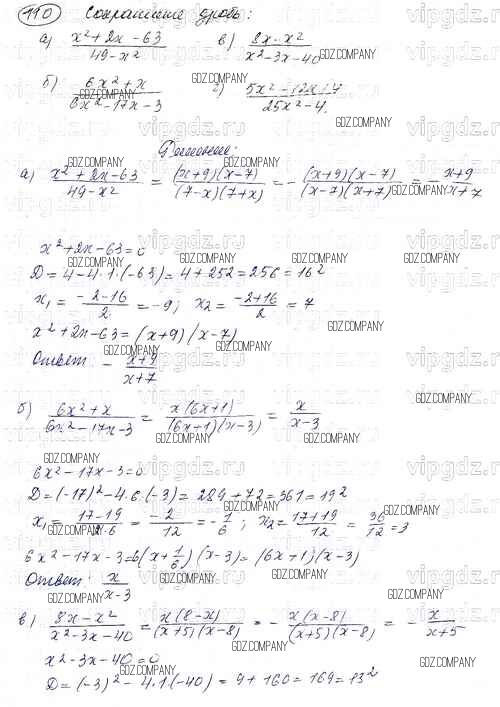 110 Сократите дробь:
а) (x² + 2x - 63)/(49 - x²) в) (8x - x²)/(x² - 3x - 40)
б) (6x² + x)/(6x² - 17x - 3) г) (5x² - 12x + 4)/(25x² - 4)
Решение:
а) (x² + 2x - 63)/(49 - x²) = ((x+9)(x-7))/((7-x)(7+x)) = -((x+9)(x-7))/((x-7)(x+7)) = -(x+9)/(x+7)
x² + 2x - 63 = 0
D = 4 - 4·1·(-63) = 4 + 252 = 256 = 16²
x₁ = (-2-16)/2 = -9; x₂ = (-2+16)/2 = 7
x² + 2x - 63 = (x+9)(x-7)
Ответ: -(x+9)/(x+7)
б) (6x² + x)/(6x² - 17x - 3) = (x(6x+1))/((6x+1)(x-3)) = x/(x-3)
6x² - 17x - 3 = 0
D = (-17)² - 4·6·(-3) = 289 + 72 = 361 = 19²
x₁ = (17-19)/(2·6) = -2/12 = -1/6; x₂ = (17+19)/12 = 36/12 = 3
6x² - 17x - 3 = 6(x + 1/6)(x-3) = (6x+1)(x-3)
Ответ: x/(x-3)
в) (8x - x²)/(x² - 3x - 40) = (x(8-x))/((x+5)(x-8)) = -(x(x-8))/((x+5)(x-8)) = -x/(x+5)
x² - 3x - 40 = 0
D = (-3)² - 4·1·(-40) = 9 + 160 = 169 = 13²
GDZ.COMPANY
vipgdz.ru